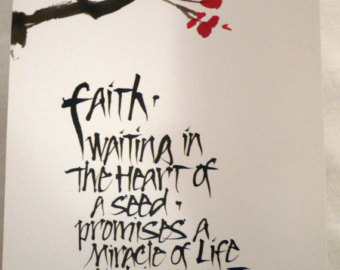 faith·
waiting in
the heart of
a seed·
promises a
Miracle of Life